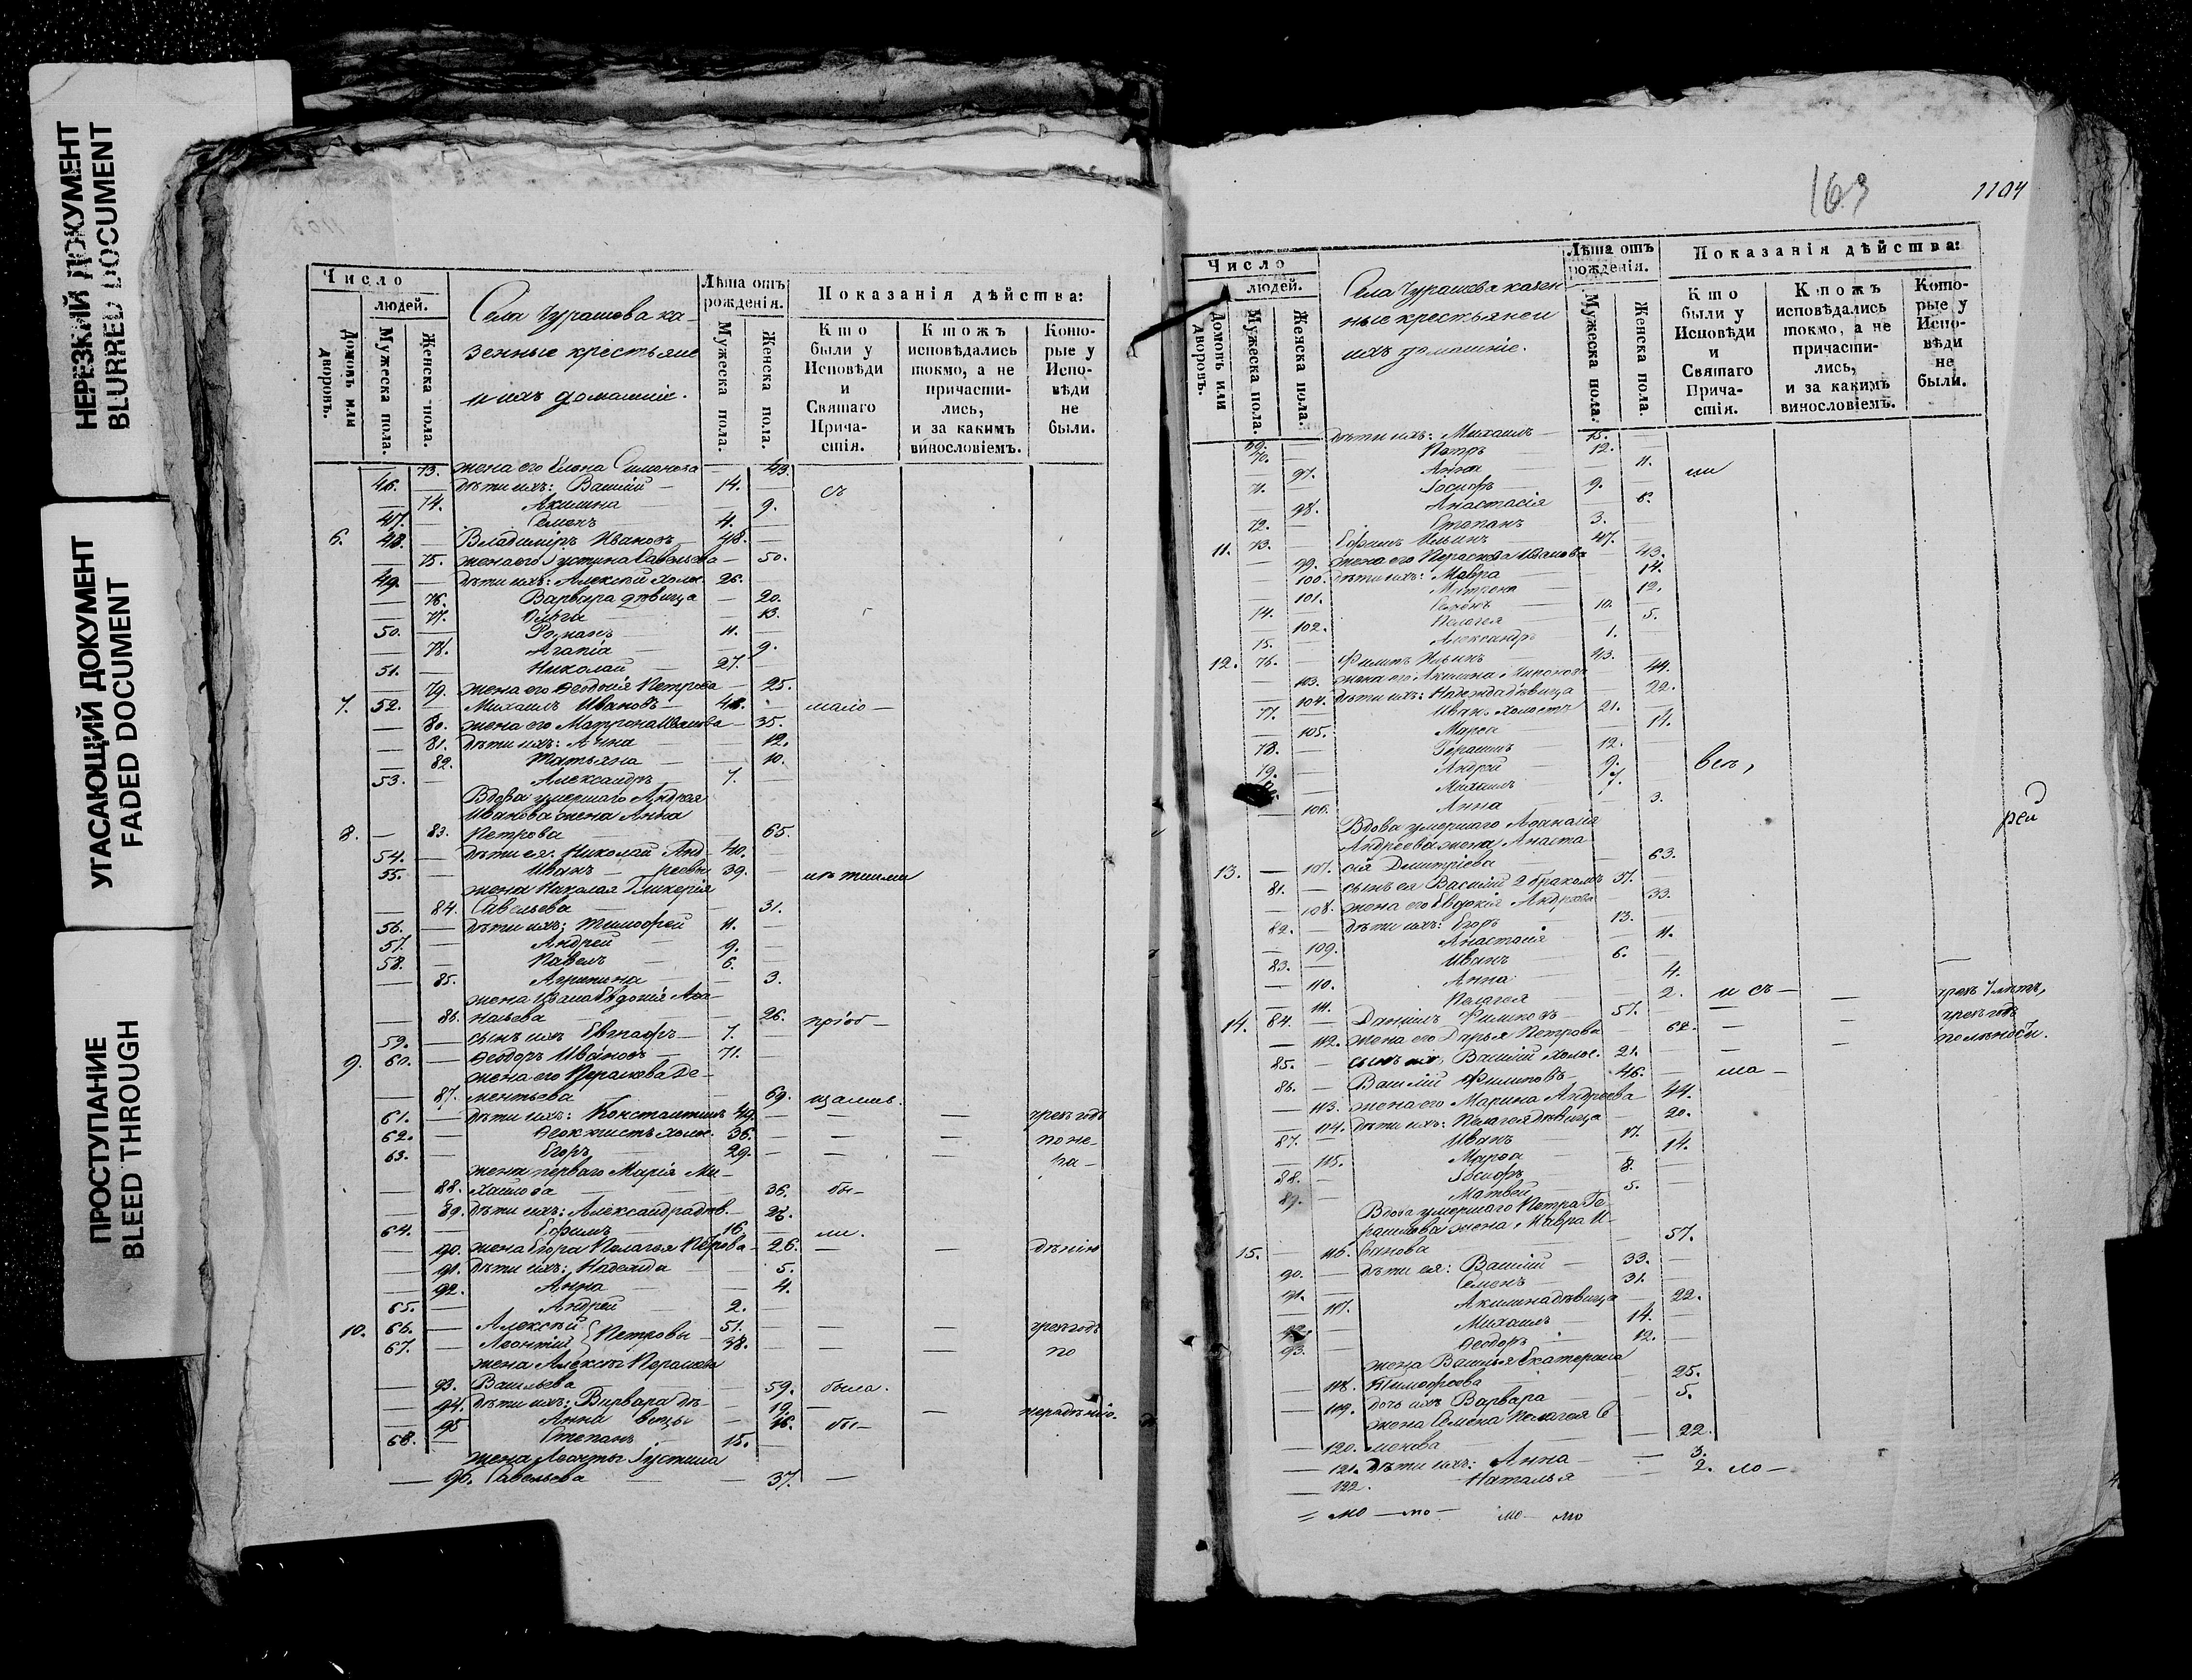 НЕРЕЗКИЙ ДОКУМЕНТ
BLURRED DOCUMENT
УГАСАЮЩИЙ ДОКУМЕНТ
FADED DOCUMENT
ПРОСТУПАНИЕ
BLEED THROUGH
Число
людей.
Домовъ или дворовъ.
Мужеска пола.
Женска пола.
Села Чурашова ка-
зенные крестьяне
и ихъ домашніе.
Лѣта отъ рожденія.
Мужеска пола.
Женска пола.
Показанія дѣйства:
Кто были у Исповѣди и Святаго Прича-стія.
Ктожъ исповѣдались токмо, а не причасти-лись, и за какимъ винословіемъ.
Кото-рые у Испо-вѣди не были.
73. жена его Елена Симонова — 43.
46. — дѣти ихъ: Василій — 14. — съ
— 74. Акилина — 9.
47. — Семенъ — 4. —
6. 48. — Владиміръ Ивановъ — 48. —
— 75. жена его Іустина Савельева — 50.
49. — дѣти ихъ: Алексѣй холос. 26. —
— 76. Варвара дѣвица — 20.
— 77. Ольга — 13.
50. — Романъ — 11. —
— 78. Агапіа — 9.
51. — Николай — 27. —
— 79. жена его Ѳеодосія Петрова — 25.
7. 52. — Михаилъ Ивановъ — 48. —
— 80. жена его Матрона Иванова — 35.
— 81. дѣти ихъ: Анна — 12.
— 82. Татьяна — 10.
53. — Александръ — 7. —
Вдова умершаго Андрея
Иванова жена Анна
8. — 83. Петрова — 65.
54. — дѣти ея: Николай Анд- 40. —
55. — Иванъ — реевы 39. —
жена Николая Гликерія
— 84. Савельева — 31.
56. — дѣти ихъ: Тимофей 11. —
57. — Андрей — 9. —
58. — Павелъ — 6. —
— 85. Агрипина — 3.
жена Ивана Евдокія Аѳа-
— 86. насьева — 26. пріоб —
59. — сынъ ихъ Евграфъ — 7. —
9. 60. — Ѳеодоръ Ивановъ — 71. —
жена его Парасковья Де-
— 87. ментьева — 69. щались.
61. — дѣти ихъ: Константинъ 49. — — чрезъ годъ
62. — Ѳеоктистъ холос. 36. — — — по не-
63. — Егоръ — 29. — — —
жена перваго Марія Ми-
— 88. хайлова — 36. бы —
— 89. дѣти ихъ: Александра дѣв. —
64. — Ефимъ — 16. — ли.
— 90. жена Егора Пелагея Петрова — 26. — — дѣнію
— 91. дѣти ихъ: Надежда — 5.
— 92. Анна — 4.
65. — Андрей — 2. —
10. 66. — Алексѣй } Петровы 51. — — — чрезъ годъ
67. — Леонтій } 38. — — — по
жена Алексѣя Парасковья
— 93. Васильева — 59. была.
— 94. дѣти ихъ: Варвара дѣ- — 19. — —
— 95 Анна вицы — 16. бы — нерадѣнію.
68. — Степанъ — 15. —
жена Леонтья Іустина
— 96. Савельева — 37. —
169
1104
Число
людей.
Домовъ или дворовъ.
Мужеска пола.
Женска пола.
Села Чурашева казен
ные крестьяне и
ихъ домашніе.
Лѣта отъ рожденія.
Мужеска пола.
Женска пола.
Показанія дѣйства:
Кто были у Исповѣди и Святаго Прича-стія.
Ктожъ исповѣдались токмо, а не причасти-лись, и за какимъ винословіемъ.
Кото-рые у Испо-вѣди не были.
69. — дѣти ихъ: Михаилъ — 15. —
70. — Петръ — 12. —
— 97. Анна — 11. ли
71. — Іосифъ — 9. —
— 98. Анастасія — 6.
72. — Степанъ — 3. —
11. 73. — Ефимъ Ильинъ — 47. —
— 99. жена его Параскева Иванова — 43.
— 100. дѣти ихъ: Мавра — 14.
— 101. Матрена — 12.
74. — Семенъ — 10. —
— 102. Пелагея — 5.
75. — Александръ — 1. —
12. 76. — Филипъ Ильинъ — 43. —
— 103. жена его Акилина — 44.
— 104. дѣти ихъ: Надежда дѣвица — 22.
77. — Иванъ холостъ 21. —
— 105. Марѳа — 14.
78. — Герасимъ — 12. —
79. — Андрей — 9. — всѣ,
— Михаилъ — 7. —
— 106. Анна — 3.
рей
Вдова умершаго Аѳанасія
Андреева жена Анаста
13. — 107. сія Димитріева — 63.
81. — сынъ ея Василій 2 бракомъ 37. —
— 108. жена его Евдокія Андреева — 33.
82. — дѣти ихъ: Егоръ — 13. —
— 109. Анастасія — 11.
83. — Иванъ — 6. —
— 110. Анна — 4.
— 111. Пелагея — 2. и съ — —
14. 84. — Даніилъ Филиповъ — 57. — — — чрезъ годъ
— 112. жена его Дарья Петрова — 62. — —
85. — сынъ ихъ Василій холос. 21. — —
86. — Василій Филиповъ — 46. — ма —
— 113. жена его Марина Андреева — 44.
— 114. дѣти ихъ: Пелагея дѣвица — 20.
87. — Иванъ — 17. —
— 115. Марѳа — 14.
88. — Іосифъ — 8. —
89. — Матвей — 5. —
Вдова умершаго Петра Ге
расимова жена Мавра И-
15. — 116. ванова — 57.
90. — дѣти ея: Василій — 33. —
91. — Семенъ — 31. —
— 117. Акилина дѣвица — 22.
92. — Михаилъ — 14. —
93. — Ѳеодоръ — 12. —
жена Василья Екатерина
— 118. Тимофеева — 25.
— 119. дочь ихъ Варвара — 5.
жена Семена Пелагея С
— 120. менова — 22.
— 121. дѣти ихъ: Анна — 3.
— 122. Наталья — 2. ло —